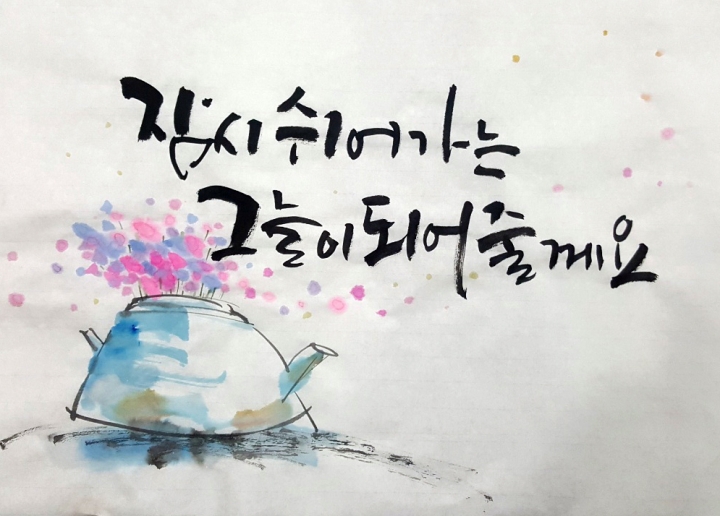 잠시 쉬어가는
그늘이 되어 줄께요